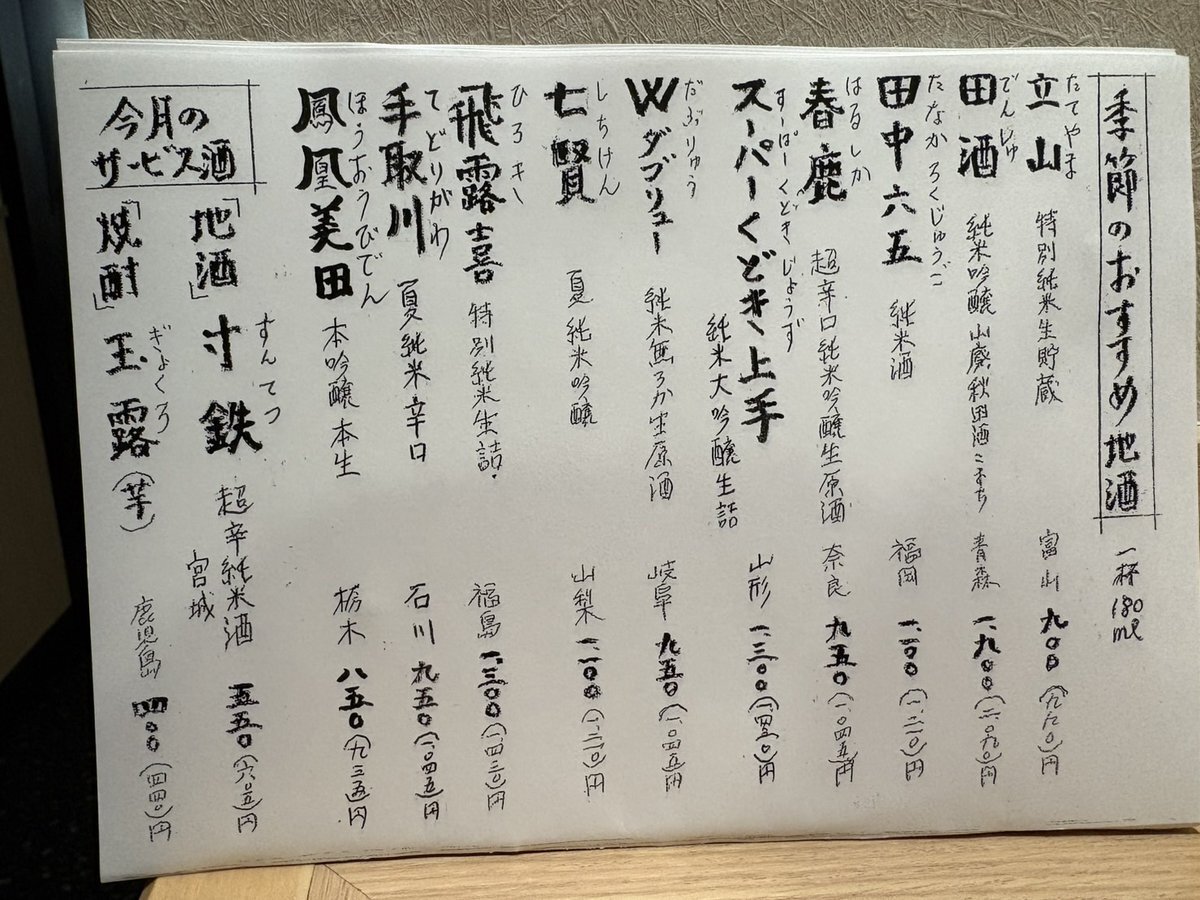 季節のおすすめ地酒 一杯180ml
たてやま
立山 特別純米生貯蔵 富山 九〇〇(九九〇)円
でんしゅ
田酒 純米吟醸 山廃秋田酒こまち 青森 一、九〇〇(二、〇九〇)円
たなかろくじゅうご
田中六五 純米酒 福岡 一、一〇〇(一、二一〇)円
はるしか
春鹿 超辛口純米吟醸生原酒 奈良 九五〇(一、〇四五)円
すーぱーくどきじょうず
スーパーくどき上手 純米大吟醸生詰 山形 一、三〇〇(一、四三〇)円
だぶりゅう
Wダブリュー 純米無ろか生原酒 岐阜 九五〇(一、〇四五)円
しちけん
七賢 夏純米吟醸 山梨 一、一〇〇(一、二一〇)円
ひろき
飛露喜 特別純米生詰 福島 一、三〇〇(一、四三〇)円
てどりがわ
手取川 夏純米辛口 石川 九五〇(一、〇四五)円
ほうおうびでん
鳳凰美田 本吟醸 本生 栃木 八五〇(九三五)円
今月の
サービス酒
「地酒」 寸鉄 超辛純米酒 宮城 五五〇(六〇五)円
すんてつ
「焼酎」 玉露(芋) 鹿児島 四〇〇(四四〇)円
ぎょくろ